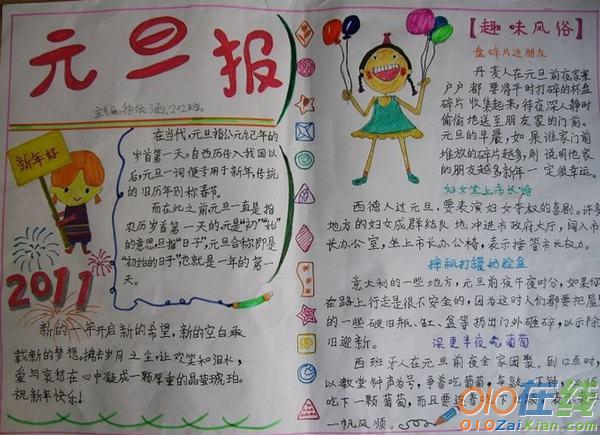 元旦报
主编:徐依涵、202班
新年好
2011
在当代,元旦指公元纪年的
岁首第一天。自西历传入我国以
后,元旦一词便专用于新年,传统
的旧历年则称春节。
而在此之前元旦一直是指
农历岁首第一天的元是“初”“始”
的意思,旦指“日子”,元旦合称即是
“初始的日子”,也就是一年的第一
天。
新的一年开启新的希望,新的空白承
载新的梦想。拂去岁月之尘,让欢笑和泪水,
爱与哀愁在心中凝成一颗厚重的晶莹琥珀。
祝新年快乐!
【趣味风俗】
盘碎片送朋友
丹麦人在元旦前夜家家
户户都要将平时打碎的杯盘
碎片收集起来,待夜深人静时
偷偷地送至朋友家的门前。
元旦的早晨,如果谁家门前
堆放的碎片越多,则说明他家
的朋友越多新年一定很幸运。
妇女坐上市长椅
西德人过元旦,要表演妇女夺权的喜剧。许多
地方的妇女成群结队地冲进市政府大厅,闯入市
长办公室,坐上市长办公椅,表示接管市长权力。
摔瓶打罐扔脸盆
意大利的一些地方,元旦前夜午夜时分,如果你
在路上行走是很不安全的,因为这时人们都要把屋
的一些破旧瓶、缸、盆等扔出门外砸碎,以示除
旧迎新。
深更半夜吃葡萄
西班牙人在元旦前夜全家团聚。到12点时,
以教堂钟声为号,争着吃葡萄,每敲一下钟,
吃下一颗葡萄,而且要连着
一帆风顺。
010在线
010ZaiXian.com